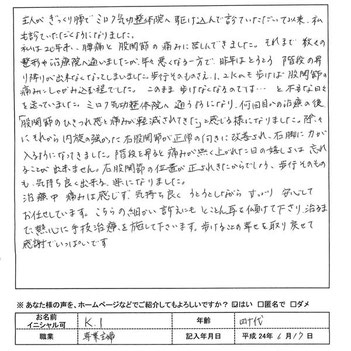 主人がぎっくり腰でミロク気功整体院へ駆け込んで診ていただいて以来、私も診ていただくようになりました。
私は20年来、腰痛と股関節の痛みに苦しんできました。それまで数々の整形や治療院へ通いましたが、年々悪くなる一方で、昨年はとうとう階段の昇り降りが出来なくなってしまいました。歩行そのものさえ、1、2kmも歩けば股関節の痛みとしびれが
このまま歩けなくなるのでは…と不安な日々を送っていました。ミロク気功整体院へ通うようになり、何回目かの治療の後
「股関節のひきつれ感と痛みが軽減されてきた」と感じる様になりました。
それから内旋の強かった右股関節が正常の向きに改善され、右脚に力が入るようになってきました。階段を昇ると痛みが無く上がれた日の嬉しさは忘れることが出来ません。右股関節の位置が正されてきたからでしょう、歩行そのものも、気持ち良く出来る様になりました。
治療中痛みは感じず、気持ち良くうとうとしながら
お任せしています。こちらの細かい訴えにもとことん耳を傾けて下さり、
熱心に手技治療を施して下さいます。歩けることの幸せを取り戻せて
感謝でいっぱいです
※あなた様の声を、ホームページなどでご紹介してもよろしいですか?☑はい □匿名で □ダメ
お名前 イニシャル可 K.I 年齢 四十代
職業 専業主婦 記入年月日 平成24年6月17日